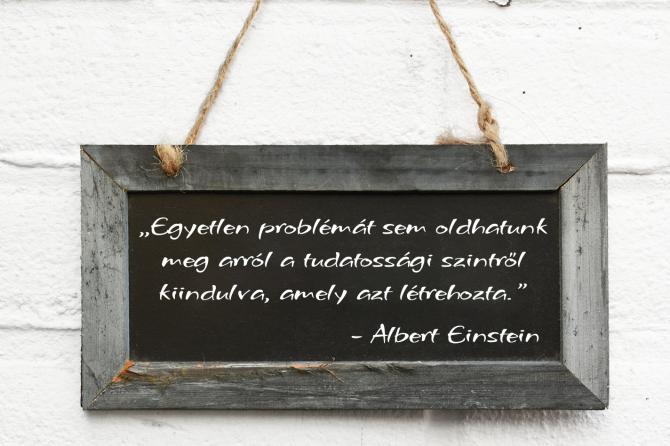 „Egyetlen problémát sem oldhatunk
meg arról a tudatossági szintről
kiindulva, amely azt létrehozta.”
- Albert Einstein